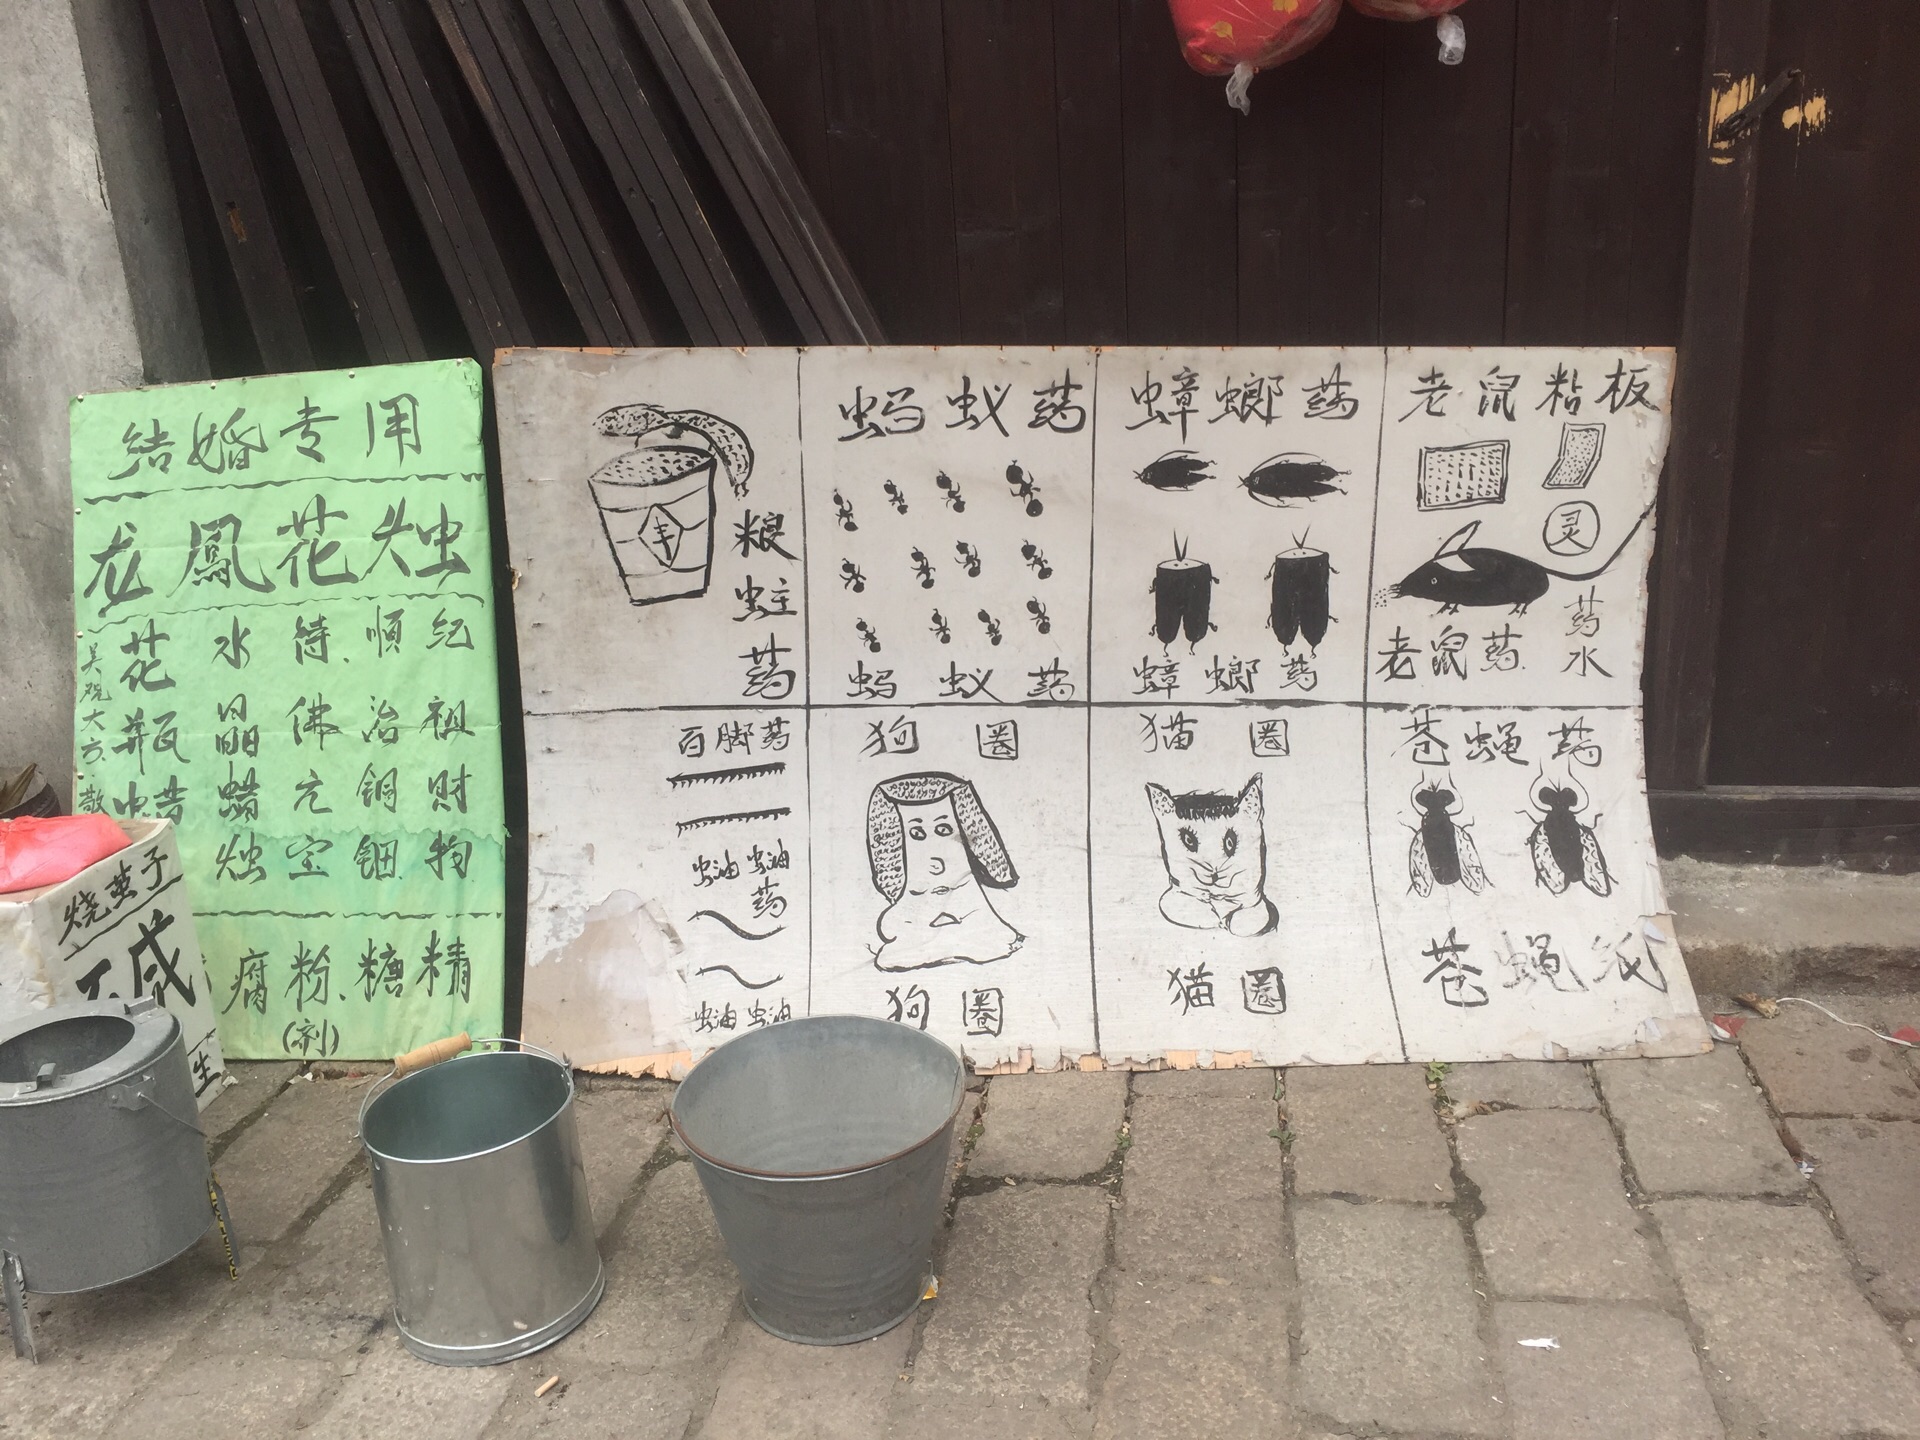 结婚专用
龙鳳花烛
花瓶蜡
水晶蜡烛
待佛元宝
順治铜钿
纪祖财物
腐粉、糖精
(剂)
烧茧子
碱
生
丰
粮蛀药
蚂蚁药
蚂蚁药
蟑螂药
蟑螂药
老鼠粘板
灵
药水
老鼠药
百脚药
蚰蚰药
蚰蚰
狗圈
狗圈
猫圈
猫圈
苍蝇药
苍蝇纸